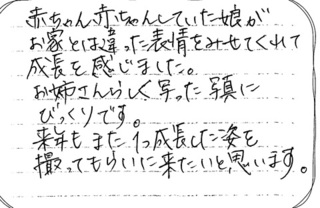 赤ちゃん赤ちゃんしていた娘が
お家とは違った表情をみせてくれて
成長を感じました。
お姉さんらしく写った写真に
びっくりです。
来年もまた1つ成長した姿を
撮ってもらいに来たいと思います。